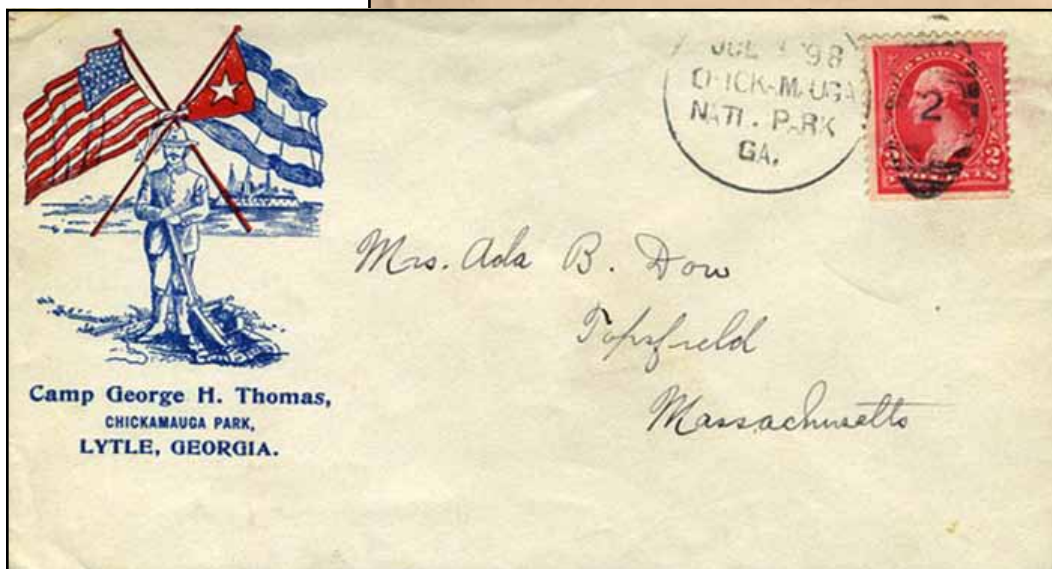 JUL '98
CHICKAMAUGA
NAT'L. PARK
GA.
2
Mrs. Ada B. Dow
Topsfield
Massachusetts
Camp George H. Thomas,
CHICKAMAUGA PARK,
LYTLE, GEORGIA.